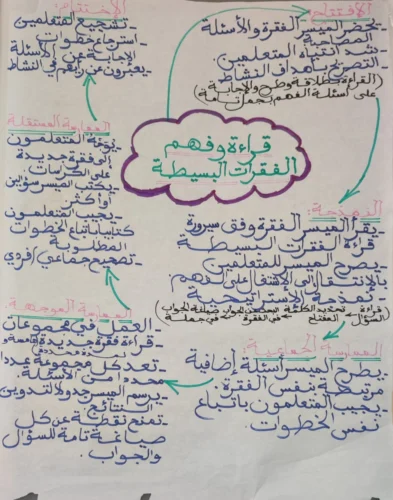 قراءة وفهم
الفقرات البسيطة
الافتتاح:
يحضر الميسر الفقرة والأسئلة
المصاحبة
- شد انتباه المتعلمين
- التصريح بأهداف النشاط
(القراءة بطلاقة وطرح والإجابة
على أسئلة الفهم بجمل تامة)
النمذجة:
- يقرأ الميسر الفقرة وفق سيرورة
قراءة الفقرات البسيطة
- يصرح الميسر للمتعلمين
بالانتقال إلى الاشتغال على الفهم
- نمذجة الاستراتيجية
قراءة السؤال
تحديد الكلمة المفتاح
في الفقرة
صياغة الجواب في جملة
الممارسة الجماعية:
- يطرح الميسر أسئلة إضافية
مرتبطة بنفس الفقرة
- يجيب المتعلمون باتباع
نفس الخطوات.
الممارسة الموجهة:
- العمل في مجموعات
- قراءة فقرة جديدة
- تعد كل مجموعة عددا
محددا من الأسئلة.
- يرسم الميسر جدولا لتدوين
النتائج
- تمنح نقطة عن كل
صياغة تامة للسؤال
والجواب.
الممارسة المستقلة
- ينتبه المتعلمون
إلى فقرة جديدة
على الكراسات
- يكتب الميسر سؤالين
أو أكثر
- يجيب المتعلمون
كتابيا باتباع الخطوات
المطلوبة
- تصحيح جماعي / فردي
الاختتام:
- تشجيع المتعلمين
- استرجاع خطوات
الإجابة عن الأسئلة
- يعبرون عن رأيهم في النشاط